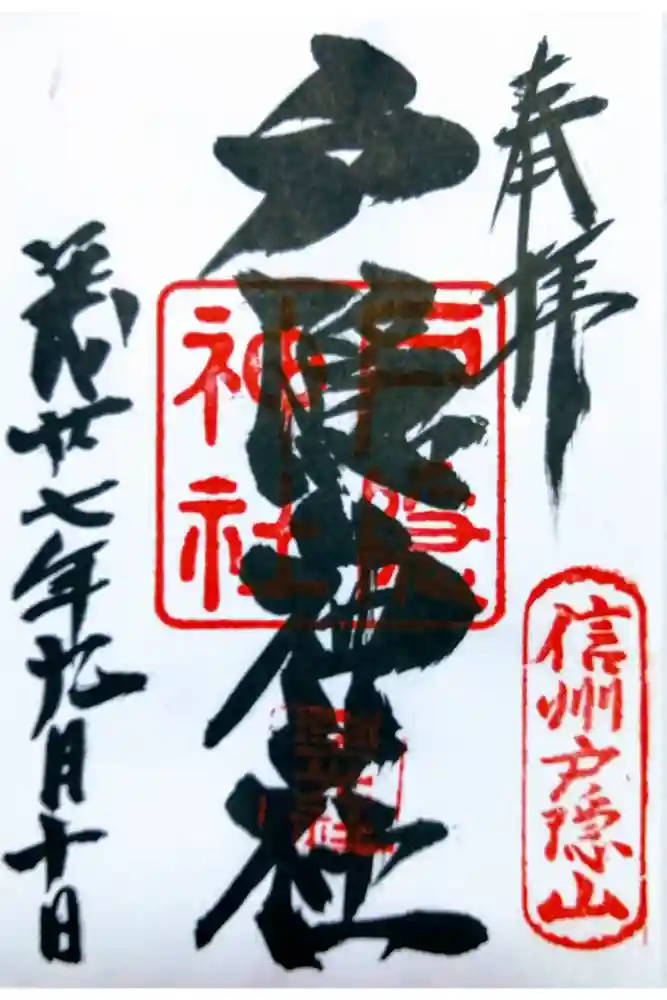 奉拝
信州戸隠山
戸隠神社
平成廿七年九月十日